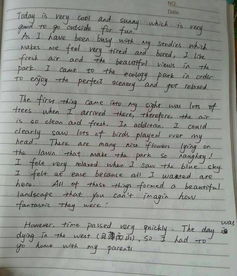 NO.
Date
Today is very cool and sunny which is very
good to go outside for fun.
As I have been busy with my studies which
makes me feel very tired and bored, I like
fresh air and the beautiful views in the
park. I came to the ecology park in order
to enjoy the perfect scenery and get relaxed.
The first thing came into my sight was lots of
trees when I arrived there, therefore the air
is so clean and fresh. In addition, I could
clearly saw lots of birds played over my
head. There are many nice flowers lying on
the lawn that make the park so naughty!
I felt very relaxed when I saw the blue sky.
I felt at ease because all I wanted are
here. All of these things formed a beautiful
landscape that you can't imagin how
fantastic they were.
However, time passed very quickly. The day was
dying in the west, so I had to
go home with my parents.